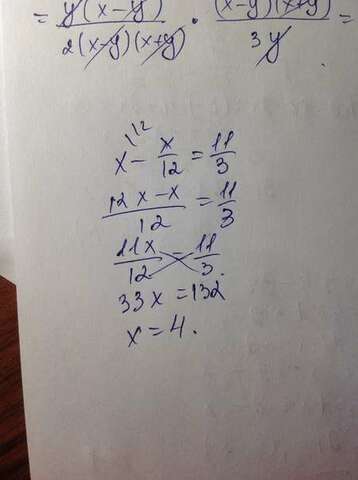 = y(x-y) / 2(x-y)(x+y) · (x-y)(x+y) / 3y =
x^12 - x/12 = 11/3
12x-x / 12 = 11/3
11x/12 = 11/3.
33x = 132
x = 4.